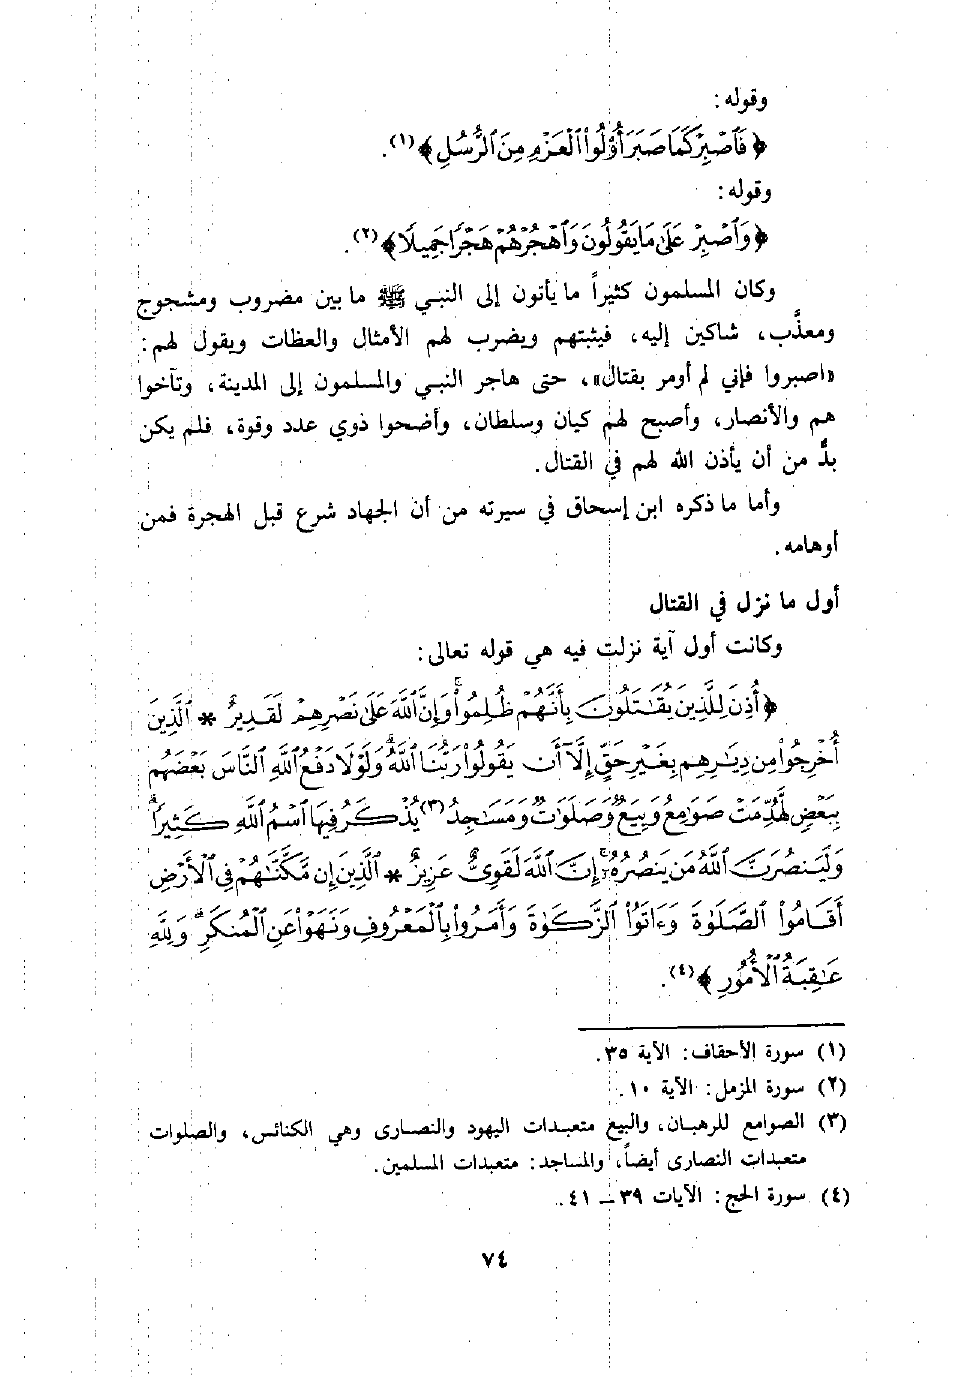 وقوله:
﴿ فَٱصْبِرْ كَمَا صَبَرَ أُوْلُوا۟ ٱلْعَزْمِ مِنَ ٱلرُّسُلِ ﴾(١).
وقوله:
﴿ وَٱصْبِرْ عَلَىٰ مَا يَقُولُونَ وَٱهْجُرْهُمْ هَجْرًا جَمِيلًا ﴾(٢).
وكان المسلمون كثيراً ما يأتون إلى النبي ﷺ ما بين مضروب ومشجوج
ومعذَّب، شاكين إليه، فيثبتهم ويضرب لهم الأمثال والعظات ويقول لهم:
«اصبروا فإني لم أومر بقتال»، حتى هاجر النبي والمسلمون إلى المدينة، وتآخوا
هم والأنصار، وأصبح لهم كيان وسلطان، وأضحوا ذوي عدد وقوة، فلم يكن
بدٌّ من أن يأذن الله لهم في القتال.
وأما ما ذكره ابن إسحاق في سيرته من أن الجهاد شرع قبل الهجرة فمن
أوهامه.
أول ما نزل في القتال
وكانت أول آية نزلت فيه هي قوله تعالى:
﴿ أُذِنَ لِلَّذِينَ يُقَـٰتَلُونَ بِأَنَّهُمْ ظُلِمُوا۟ ۚ وَإِنَّ ٱللَّهَ عَلَىٰ نَصْرِهِمْ لَقَدِيرٌ * ٱلَّذِينَ
أُخْرِجُوا۟ مِن دِيَـٰرِهِم بِغَيْرِ حَقٍّ إِلَّآ أَن يَقُولُوا۟ رَبُّنَا ٱللَّهُ ۗ وَلَوْلَا دَفْعُ ٱللَّهِ ٱلنَّاسَ بَعْضَهُم
بِبَعْضٍ لَّهُدِّمَتْ صَوَٰمِعُ وَبِيَعٌ وَصَلَوَٰتٌ وَمَسَـٰجِدُ(٣) يُذْكَرُ فِيهَا ٱسْمُ ٱللَّهِ كَثِيرًا ۗ
وَلَيَنصُرَنَّ ٱللَّهُ مَن يَنصُرُهُۥٓ ۗ إِنَّ ٱللَّهَ لَقَوِىٌّ عَزِيزٌ * ٱلَّذِينَ إِن مَّكَّنَّـٰهُمْ فِى ٱلْأَرْضِ
أَقَامُوا۟ ٱلصَّلَوٰةَ وَءَاتَوُا۟ ٱلزَّكَوٰةَ وَأَمَرُوا۟ بِٱلْمَعْرُوفِ وَنَهَوْا۟ عَنِ ٱلْمُنكَرِ ۗ وَلِلَّهِ
عَـٰقِبَةُ ٱلْأُمُورِ ﴾(٤).
(١) سورة الأحقاف: الآية ٣٥.
(٢) سورة المزمل: الآية ١٠.
(٣) الصوامع للرهبان، والبيع متعبدات اليهود والنصارى وهي الكنائس، والصلوات
متعبدات النصارى أيضاً، والمساجد: متعبدات المسلمين.
(٤) سورة الحج: الآيات ٣٩ ــ ٤١.
٧٤